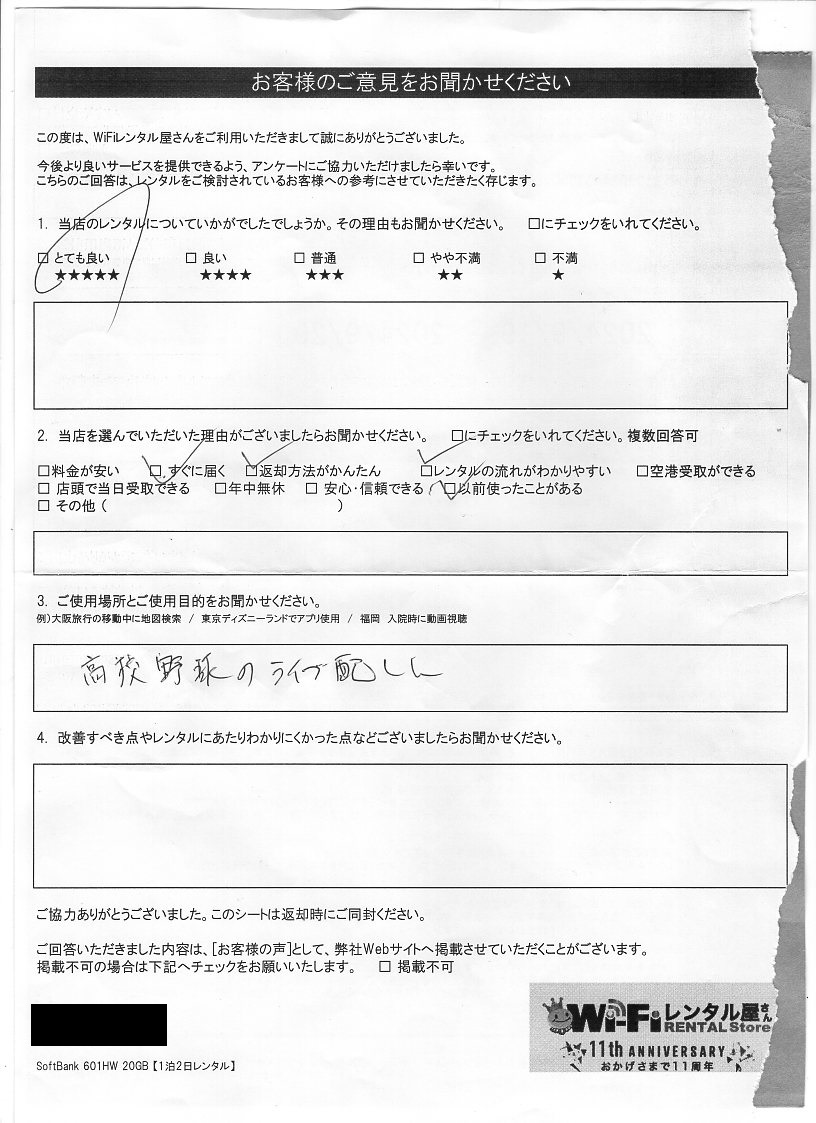 お客様のご意見をお聞かせください
この度は、WiFiレンタル屋さんをご利用いただきまして誠にありがとうございました。
今後より良いサービスを提供できるよう、アンケートにご協力いただけましたら幸いです。
こちらのご回答は、レンタルをご検討されているお客様への参考にさせていただきたく存じます。
1. 当店のレンタルについていかがでしたでしょうか。その理由もお聞かせください。 □にチェックをいれてください。
□ とても良い □ 良い □ 普通 □ やや不満 □ 不満
★★★★★ ★★★★ ★★★ ★★ ★
2. 当店を選んでいただいた理由がございましたらお聞かせください。 □にチェックをいれてください。複数回答可
□料金が安い □すぐに届く □返却方法がかんたん □レンタルの流れがわかりやすい □空港受取ができる
□ 店頭で当日受取できる □年中無休 □ 安心・信頼できる □以前使ったことがある
□ その他（ ）
3. ご使用場所とご使用目的をお聞かせください。
例）大阪旅行の移動中に地図検索 / 東京ディズニーランドでアプリ使用 / 福岡 入院時に動画視聴
高校野球のライブ配しん
4. 改善すべき点やレンタルにあたりわかりにくかった点などございましたらお聞かせください。
ご協力ありがとうございました。このシートは返却時にご同封ください。
ご回答いただきました内容は、[お客様の声]として、弊社Webサイトへ掲載させていただくことがございます。
掲載不可の場合は下記へチェックをお願いいたします。 □ 掲載不可
Wi-Fiレンタル屋さん
RENTAL Store
11th ANNIVERSARY
おかげさまで11周年
SoftBank 601HW 20GB【1泊2日レンタル】